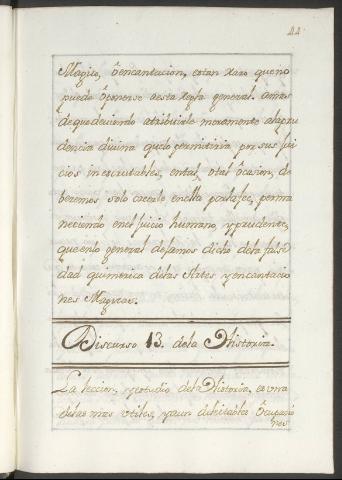 44
Magico, ô encantacion, es tan raro que no
puede ôponerse a esta regla general. amas
de que deviendo atribuirle meramente ala pru
dencia divina que lo permitiria por sus jui
cios inescrutables, en tal, o tal ôcasion, de
beremos solo creerlo en ella por la fee, perma
neciendo en el juicio humano, y prudente,
que en lo general dejamos dicho de la falsi
dad quimerica de las Artes y encantacio
nes Magicas.
Discurso 13. de la Historia.
La leccion, y estudio de la Historia, es vna
de las mas vtiles, y aun deleitables ôcupacio
nes